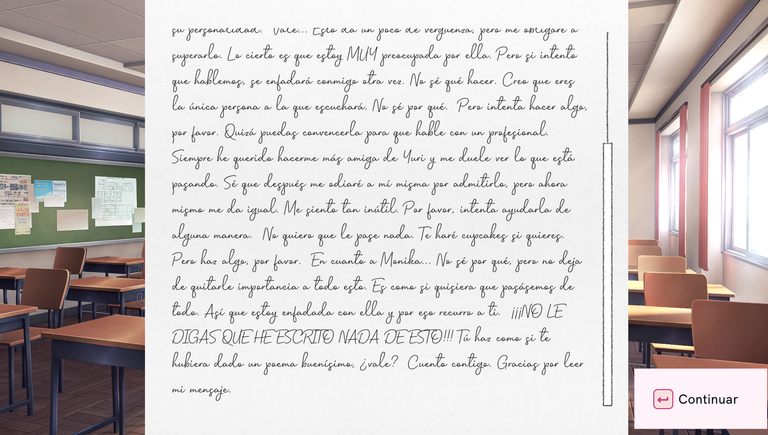 su personalidad. Vale... Esto da un poco de vergüenza, pero me obligaré a
superarlo. Lo cierto es que estoy MUY preocupada por ella. Pero si intento
que hablemos, se enfadará conmigo otra vez. No sé qué hacer. Creo que eres
la única persona a la que escuchará. No sé por qué. Pero intenta hacer algo,
por favor. Quizá puedas convencerla para que hable con un profesional.
Siempre he querido hacerme más amiga de Yuri y me duele ver lo que está
pasando. Sé que después me odiaré a mí misma por admitirlo, pero ahora
mismo me da igual. Me siento tan inútil. Por favor, intenta ayudarla de
alguna manera. No quiero que le pase nada. Te haré cupcakes si quieres.
Pero haz algo, por favor. En cuanto a Monika... No sé por qué, pero no deja
de quitarle importancia a todo esto. Es como si quisiera que pasásemos de
todo. Así que estoy enfadada con ella y por eso recurro a ti. ¡¡¡NO LE
DIGAS QUE HE ESCRITO NADA DE ESTO!!! Tú haz como si te
hubiera dado un poema buenísimo, ¿vale? Cuento contigo. Gracias por leer
mi mensaje.
Continuar